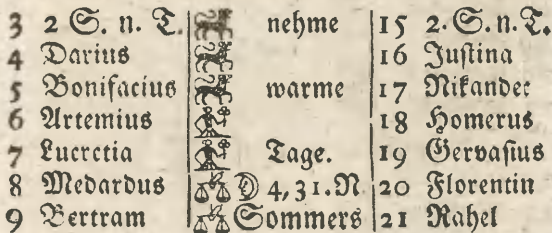 3 2 S. n. T. nehme 15 2. S. n. T.
4 Darius 16 Juſtina
5 Bonifacius warme 17 Nikander
6 Artemius 18 Homerus
7 Lucretia Tage. 19 Gervaſius
8 Medardus ☽ 4, 31. N 20 Florentin
9 Bertram Sommers 21 Rahel